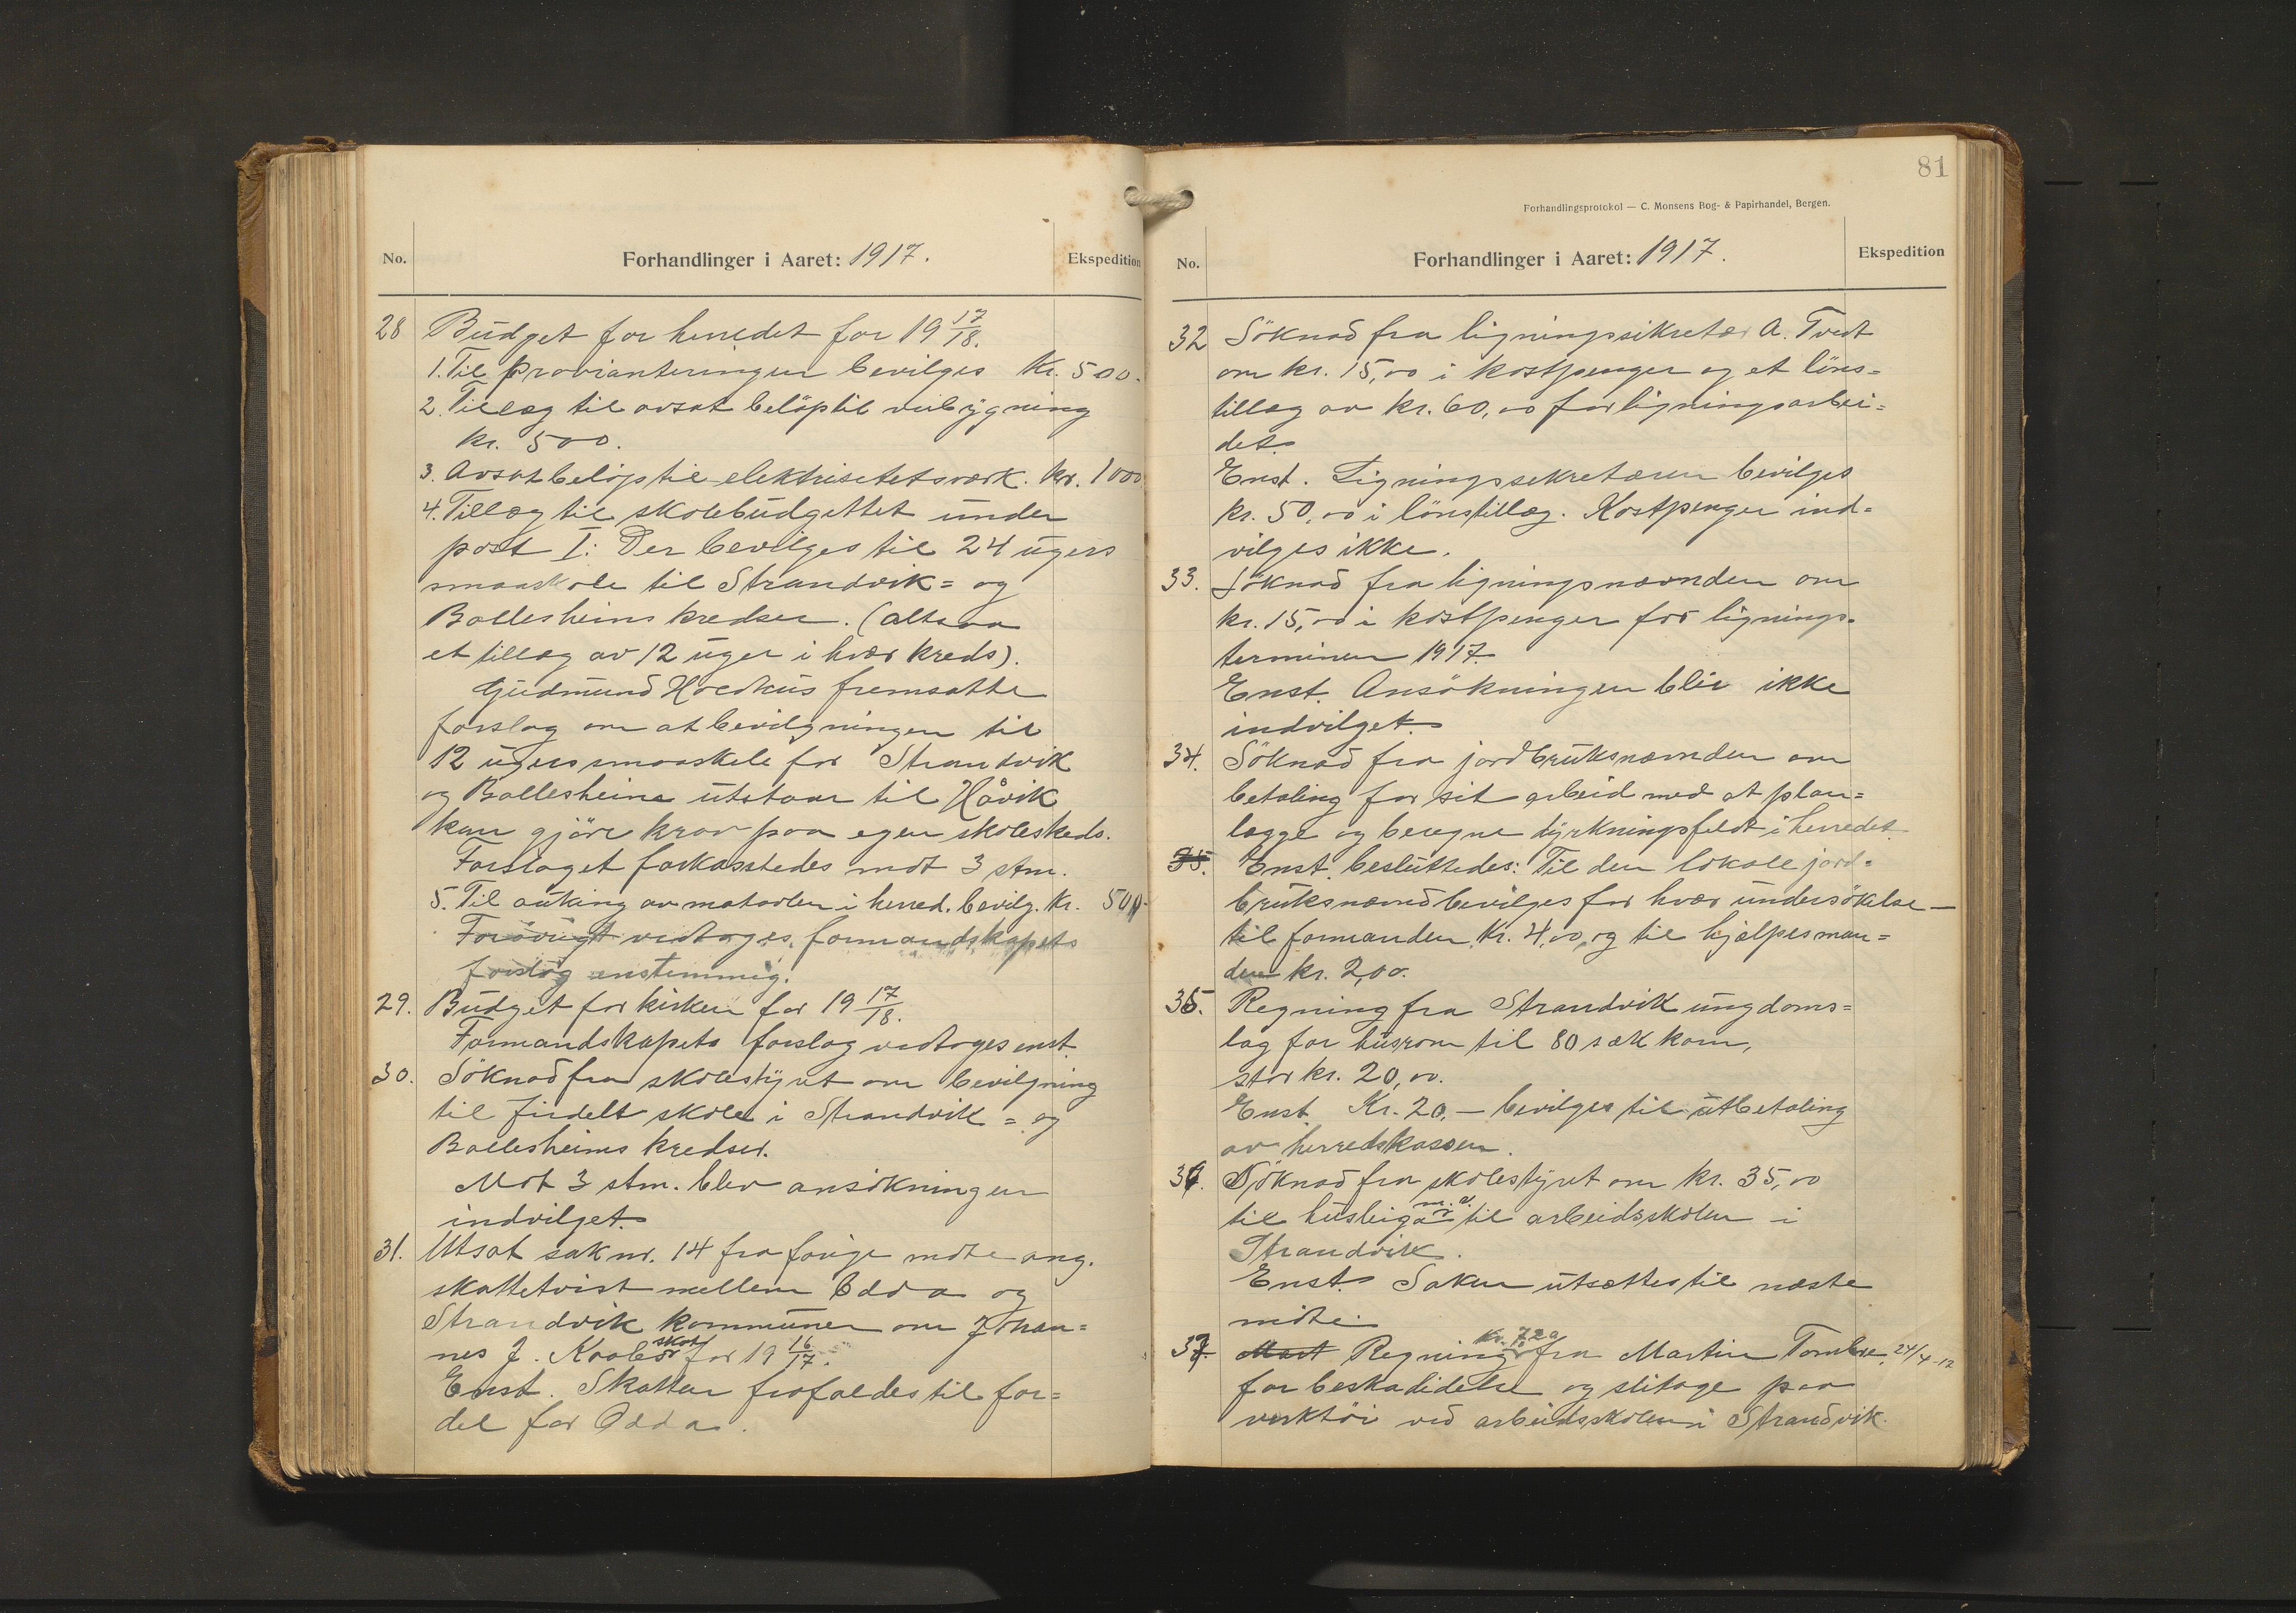 No.
Forhandlinger i Aaret: 1917.
Ekspedition
28 Budget for herredet for 19 17/18.
1. Til provianteringen bevilges Kr. 500.
2. Tillæg til avsat beløp til veibygning
kr. 500.
3. Avsat beløp til elektrisitetsverk. kr. 1000
4. Tillæg til skolebudgettet under
post I: Der bevilges til 24 ugers
smaaskole til Strandvik= og
Bollesheims kredser. (altsaa
et tillæg av 12 uger i hver kreds).
Gudmund Hovdkus fremsatte
forslag om at bevilgningen til
12 ugers smaaskole for Strandvik
og Bollesheim utstaar til Håvik
kan gjöre krav paa egen skolekreds.
Forslaget forkastedes mot 3 stm.
5. Til auking av matavlen i herred. bevilg. kr. 500.
Forövrigt vedtages formandskapets
forslag enstemmig.
29. Budget for kirken for 19 17/18.
Formandskapets forslag vedtoges enst.
30. Söknad fra skolestyret om bevilgning
til firdelt skole i Strandvik= og
Bollesheims kredser.
Mot 3 stm. blev ansökningen
indvilget.
31. Utsat sak nr. 14 fra forige möte ang.
skattetvist mellem Odda og
Strandvik kommuner om Johan=
nes J. skat for 19 16/17.
Enst. Skatten frafaldes til for=
del for Odda.
81
Forhandlingsprotokol — C. Monsens Bog- & Papirhandel, Bergen.
No.
Forhandlinger i Aaret: 1917.
Ekspedition
32 Söknad fra ligningssekretær A. Tveit
om kr. 15,00 i kostpenger og et löns=
tillæg av kr. 60,00 for ligningsarbei=
det.
Enst. Ligningssekretæren bevilges
kr. 50,00 i lönstillæg. Kostpenger ind=
vilges ikke.
33. Söknad fra ligningsnævnden om
kr. 15,00 i kostpenger for lignings=
terminen 1917.
Enst. Ansökningen blir ikke
indvilget.
34. Söknad fra jordbruksnævnden om
betaling for sit arbeid med at plan=
lægge og beregne dyrkningsfeldt i herredet.
35. Enst. besluttedes: Til den lokale jord=
bruksnævnd bevilges for hver undersökelse —
til formanden kr. 4,00, og til hjælpesman=
den kr. 2,00.
35. Regning fra Strandvik ungdoms=
lag for husrom til 80 sæk korn,
stor kr. 20,00.
Enst. Kr. 20,— bevilges til utbetaling
av herredskassen.
36. Söknad fra skolestyret om kr. 35,00
til husleiga m. v. til arbeidsskolen i
Strandvik.
Enst. Saken utsættes til næste
möte.
37. Mart Regning kr. 7.20 fra Martin Tombre, 24/4-12
for beskadidelse og slitage paa
verktöi ved arbeidsskolen i Strandvik.